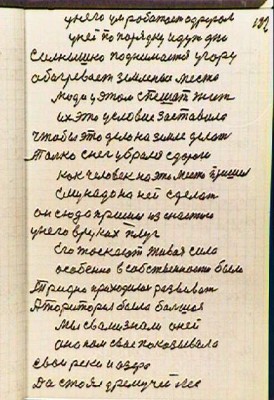 132
у него ум работает о другом
у ней по порядку идут дни
Солнышко поднимается у гору
обагревает земльное место
люди у этом спешат жит
их это условие заставило
чтобы это дело на земле делат
Только снег убрался з дороги
как человек на это место пришел
ему надо на ней сделат
он сюда пришел из частью
у него в руках плуг
Его таскает живая сила
особенно в собственности была
Трудно приходилося развиват
А територия была балшая
мы с вами знаем о ней
она нам свае показывала
свои реки и озера
Да стоял дремучий лес